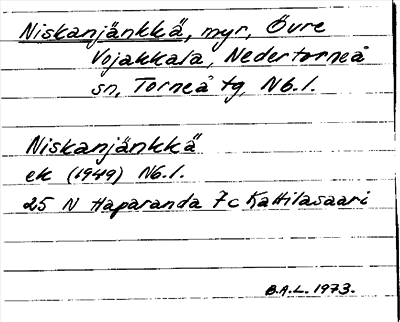 Niskanjänkkä, myr, Övre
Vojakkala, Nedertorneå
sn, Torneå tg, Nb.l.
Niskanjänkkä
ek (1949) Nb.l.
25 N Haparanda 7c Kattilasaari
B.A.L. 1973.